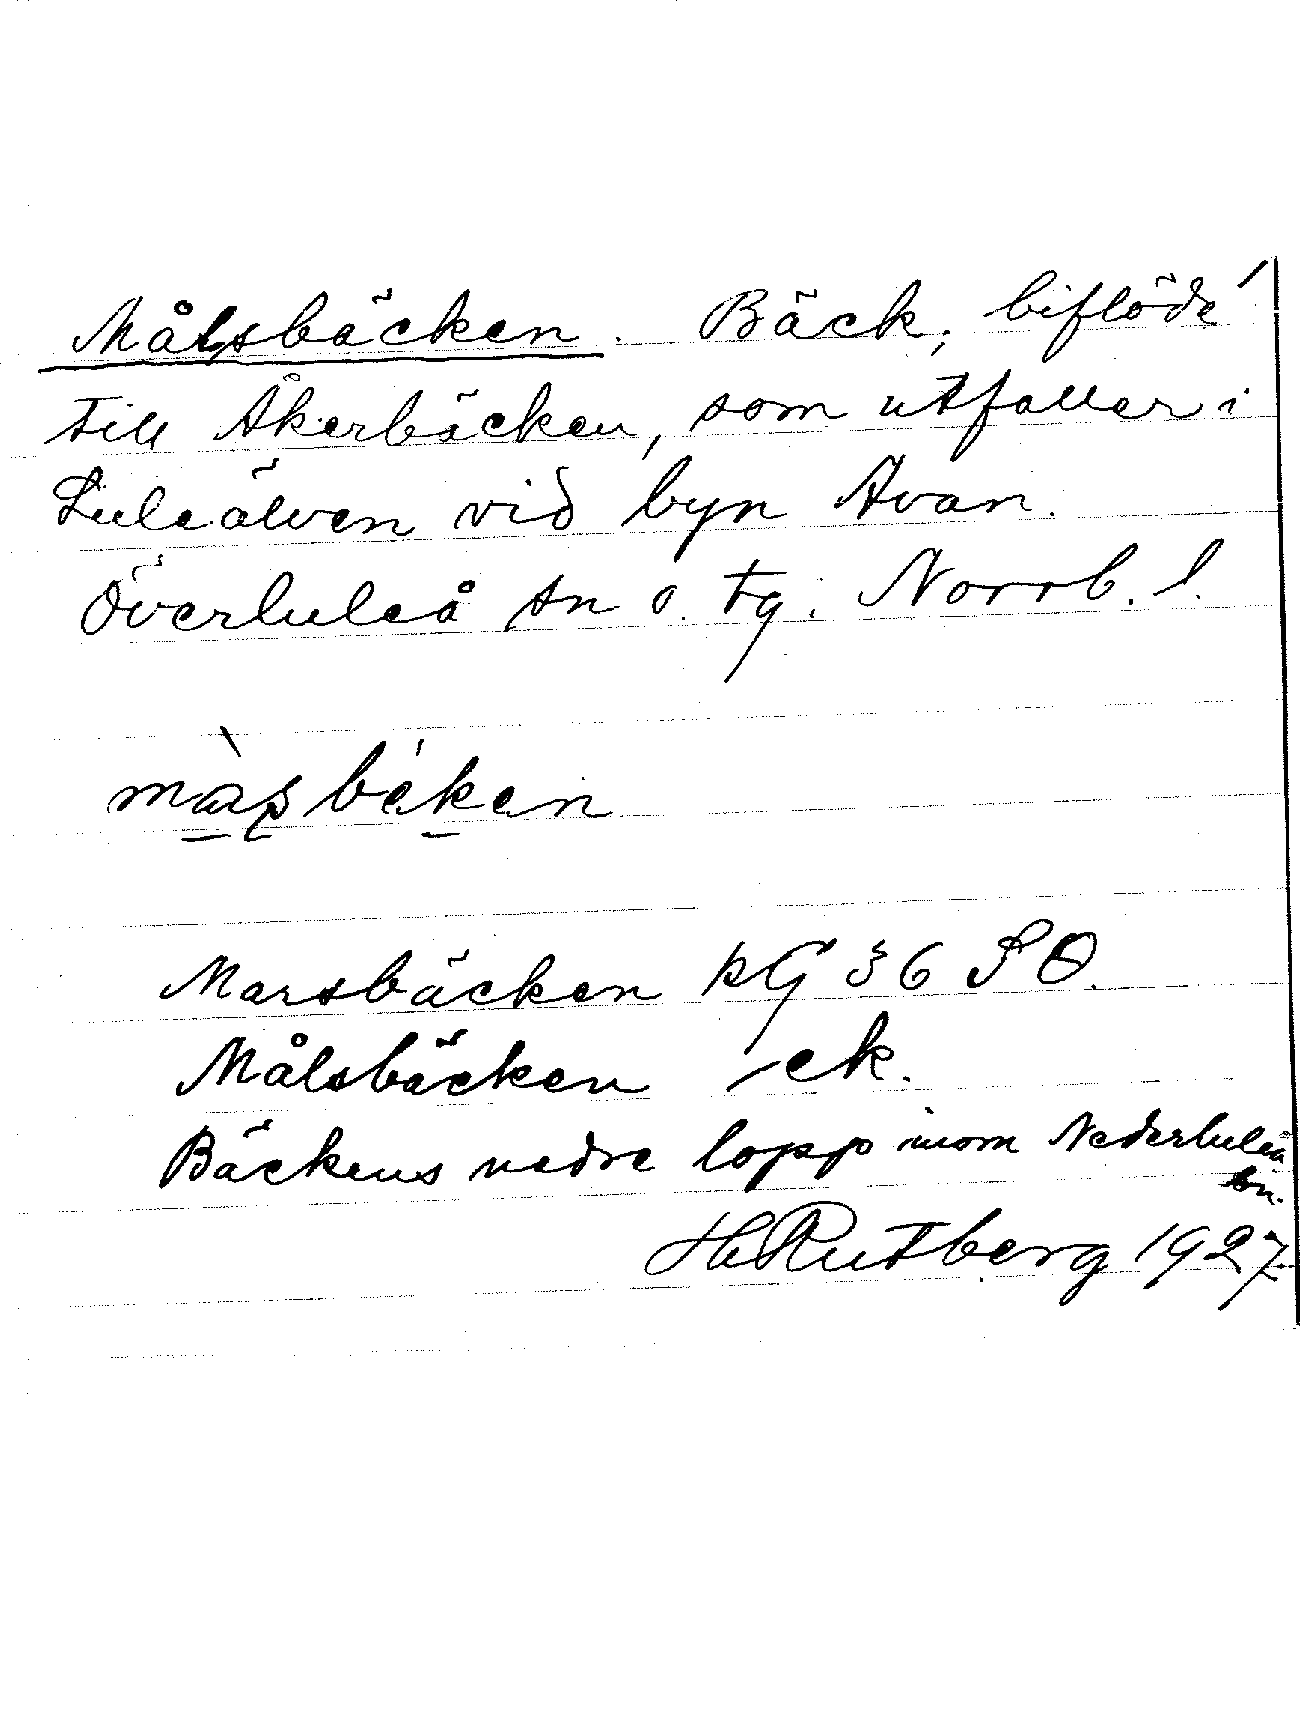 Målsbäcken. Bäck, biflöde
till Åkerbäcken, som utfaller i
Luleälven vid byn Avan.
Överluleå sn o. tg. Norrb. l.
Marsbäcken kG 36 SO.
Målsbäcken ek.
Bäckens nedre lopp inom Nederluleå
sn.
H Rutberg 1927.